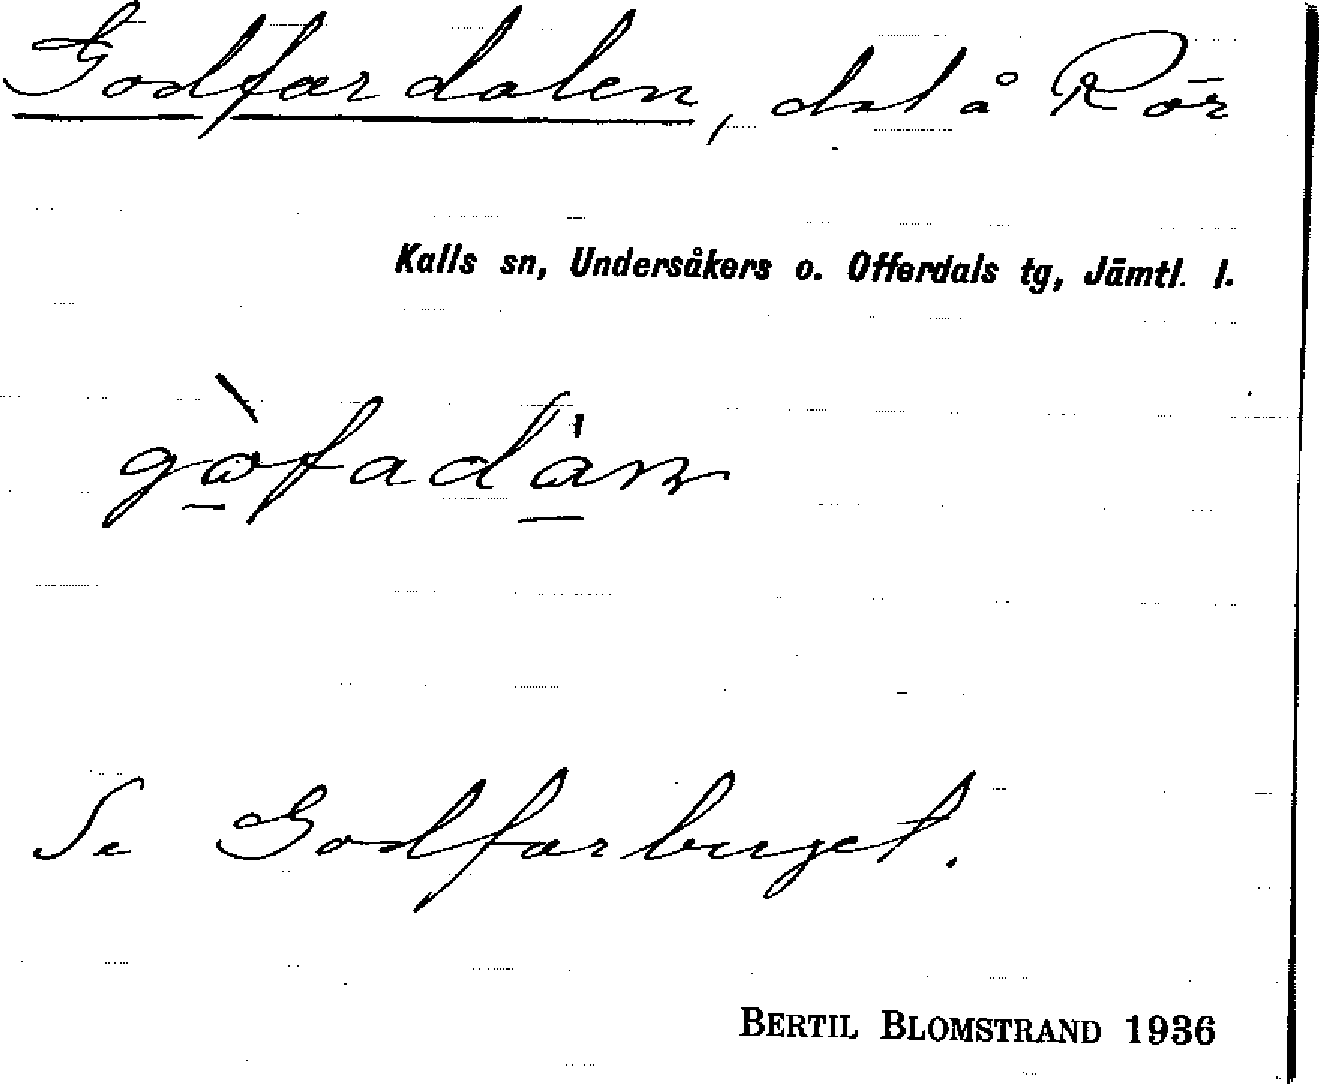 Godfardalen, dal å Rör
Kalls sn, Undersåkers o. Offerdals tg, Jämtl. l.
gòfadàn
Se Godfarberget.
BERTIL BLOMSTRAND 1936